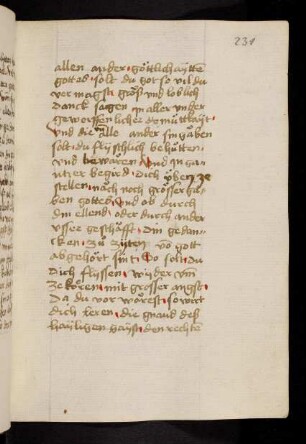 231
allen ander göttlichaÿtten
gottes · solt du got so vil du
vermagst groß und loblich
danck sagen in aller under
geworffenlicher demüttkaÿt ·
Und die alle ander sin gaben
solt du flÿslich behütten
vnd bewaren · Und in gan
tzer begird dich ÿben ze
stellen nach noch grösser ga
ben gottes Und ob durch
din ellend oder durch ander
vsser geschäfft din gedan
cken zu zÿten von gott
abgehört sint So solt du
dich flÿssen wyder vm
ze keren mit grosser angst
Da du vor wörest so wirt
dich leren die gnaud deß
haÿligen gaÿst den rechten